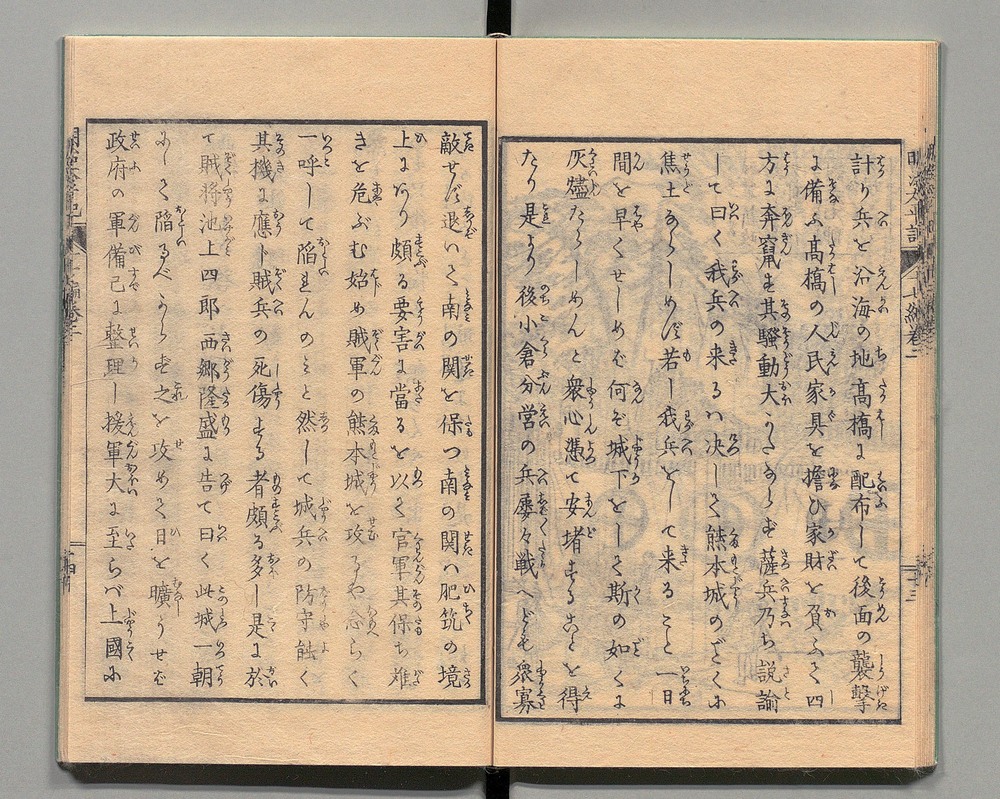 計り兵を沿海の地高橋に配布して後面の襲撃
に備ふ高橋の人民家具を擔ひ家財を負ふて四
方に奔竄す其騒動大かたならず薩兵乃ち説諭
して曰く我兵の来るハ决して熊本城のごくに
焦土ならしめず若し我兵をして来ること一日
間を早くせしめバ何ぞ城下をして斯の如くに
灰燼たらしめんと衆心憑て安堵することを得
たり是より後小倉分営の兵屡々戦へども衆寡
敵せず退いて南の関を保つ南の関ハ肥筑の境
上にあり頗る要害に當るを以て官軍其保ち難
きを危ぶむ始め賊軍の熊本城を攻るや念らく
一呼して陥れんのミと然して城兵の防守能く
其機に應じ賊兵の死傷する者頗る多し是に於
て賊將池上四郎西郷隆盛に告て曰く此城一朝
にして陥るべからず之を攻めて日を曠うせバ
政府の軍備已に整理し援軍大に至らバ上國に